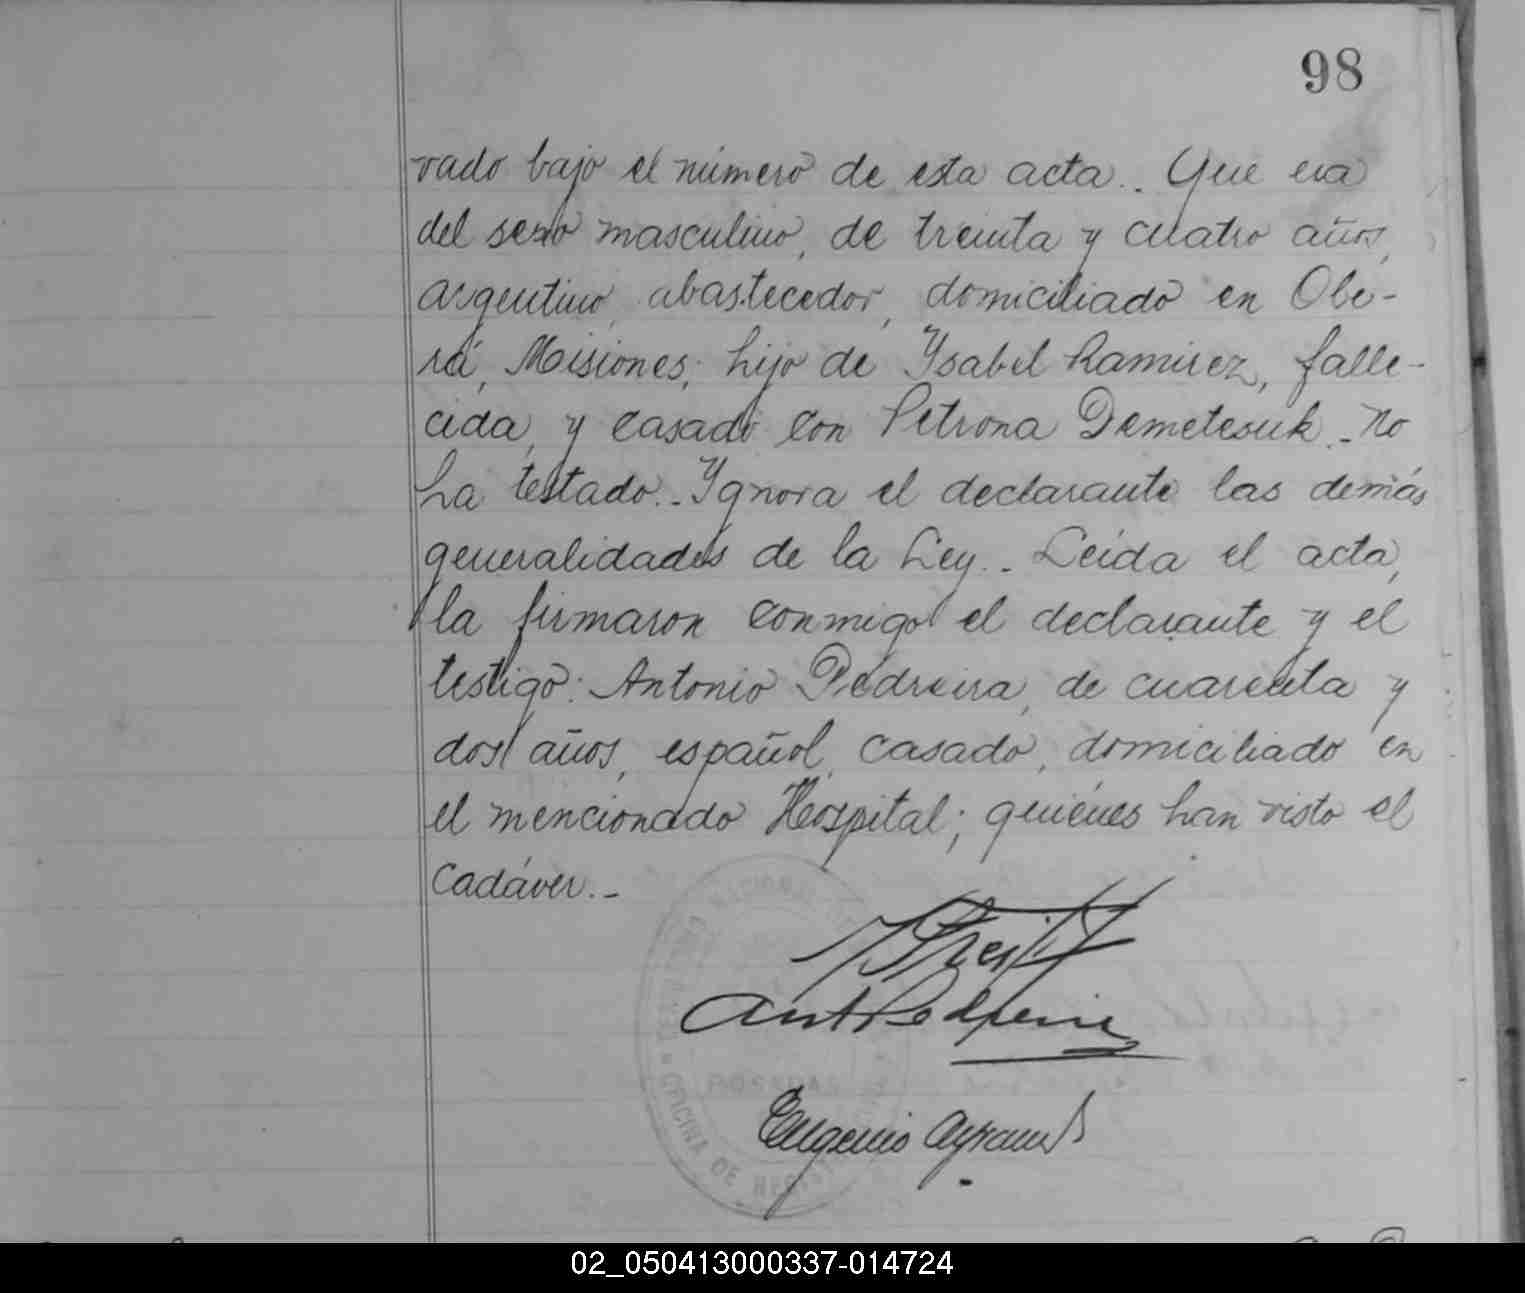 98
vado bajo el número de esta acta.. Que era
del sexo masculino, de treinta y cuatro años,
argentino, abastecedor, domiciliado en Obe-
rá, Misiones; hijo de Ysabel Ramirez, falle-
cida, y casado con Petrona Demetesuk.- No
ha testado.- Ygnora el declarante las demás
generalidades de la Ley.- Leída el acta,
la firmaron conmigo el declarante y el
testigo: Antonio Pedreira, de cuarenta y
dos años, español, casado, domiciliado en
el mencionado Hospital; quiénes han visto el
cadáver.-
Ant Pedreira
Eugenio
NACIONAL
POSADAS
OFICINA DE
02_050413000337-014724